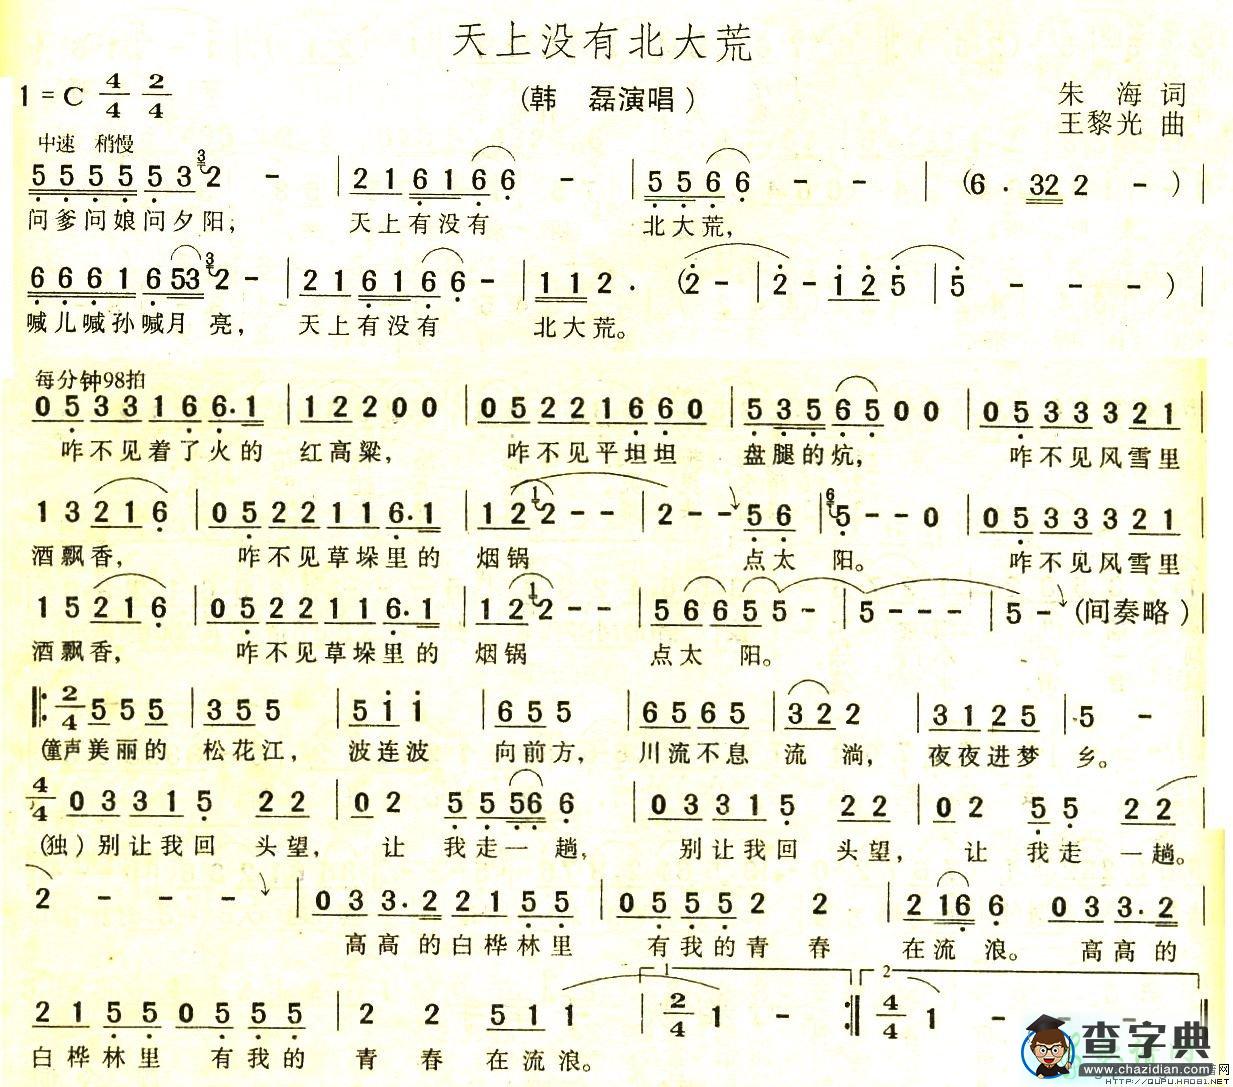 天上没有北大荒
1=C 4/4 2/4
(韩 磊演唱)
朱 海 词
王黎光 曲
中速 稍慢
5 5 5 5 5 3 3 2 - | 2 1 6 1 6 6 - | 5 5 6 6 - - | (6 . 32 2 -) |
问爹问娘问夕阳; 天上有没有 北大荒,
6 6 6 1 6 53 3 2 - | 2 1 6 1 6 6 - | 1 1 2 . (2 - | 2 - 1 2 5 | 5 - - -) |
喊儿喊孙喊月 亮, 天上有没有 北大荒。
每分钟98拍
0 5 3 3 1 6 6. 1 | 1 2 2 0 0 | 0 5 2 2 1 6 6 0 | 5 3 5 6 5 0 0 | 0 5 3 3 3 2 1 |
咋不见着了火的 红高粱, 咋不见平坦坦 盘腿的炕, 咋不见风雪里
1 3 2 1 6 | 0 5 2 2 1 1 6. 1 | 1 2 1 2 - - | 2 - - 5 6 | 6 5 - - 0 | 0 5 3 3 3 2 1 |
酒飘香, 咋不见草垛里的 烟锅 点太 阳。 咋不见风雪里
1 5 2 1 6 | 0 5 2 2 1 1 6. 1 | 1 2 1 2 - - | 5 6 6 5 5 - | 5 - - - | 5 - (间奏略) |
酒飘香, 咋不见草垛里的 烟锅 点太 阳。
2/4 5 5 5 | 3 5 5 | 5 1 1 | 6 5 5 | 6 5 6 5 | 3 2 2 | 3 1 2 5 | 5 - |
(童声)美丽的 松花江, 波连波 向前方, 川流不息 流 淌, 夜夜进梦 乡。
4/4 0 3 3 1 5 2 2 | 0 2 5 5 56 6 | 0 3 3 1 5 2 2 | 0 2 5 5 2 2 |
(独)别让我回 头望, 让 我走一 趟, 别让我回 头望, 让 我走 一趟。
2 - - - | 0 3 3. 2 2 1 5 5 | 0 5 5 5 2 2 | 2 16 6 0 3 3. 2 |
高高 的白桦林里 有我的青 春 在流 浪。 高高的
2 1 5 5 0 5 5 5 | 2 2 5 1 1 | 1 2/4 1 - :| 2 4/4 1 - - - ||
白桦林里 有我的 青 春 在流浪。
查字典
www.chazidian.com
HTTP://QUPU.HAO81.NET